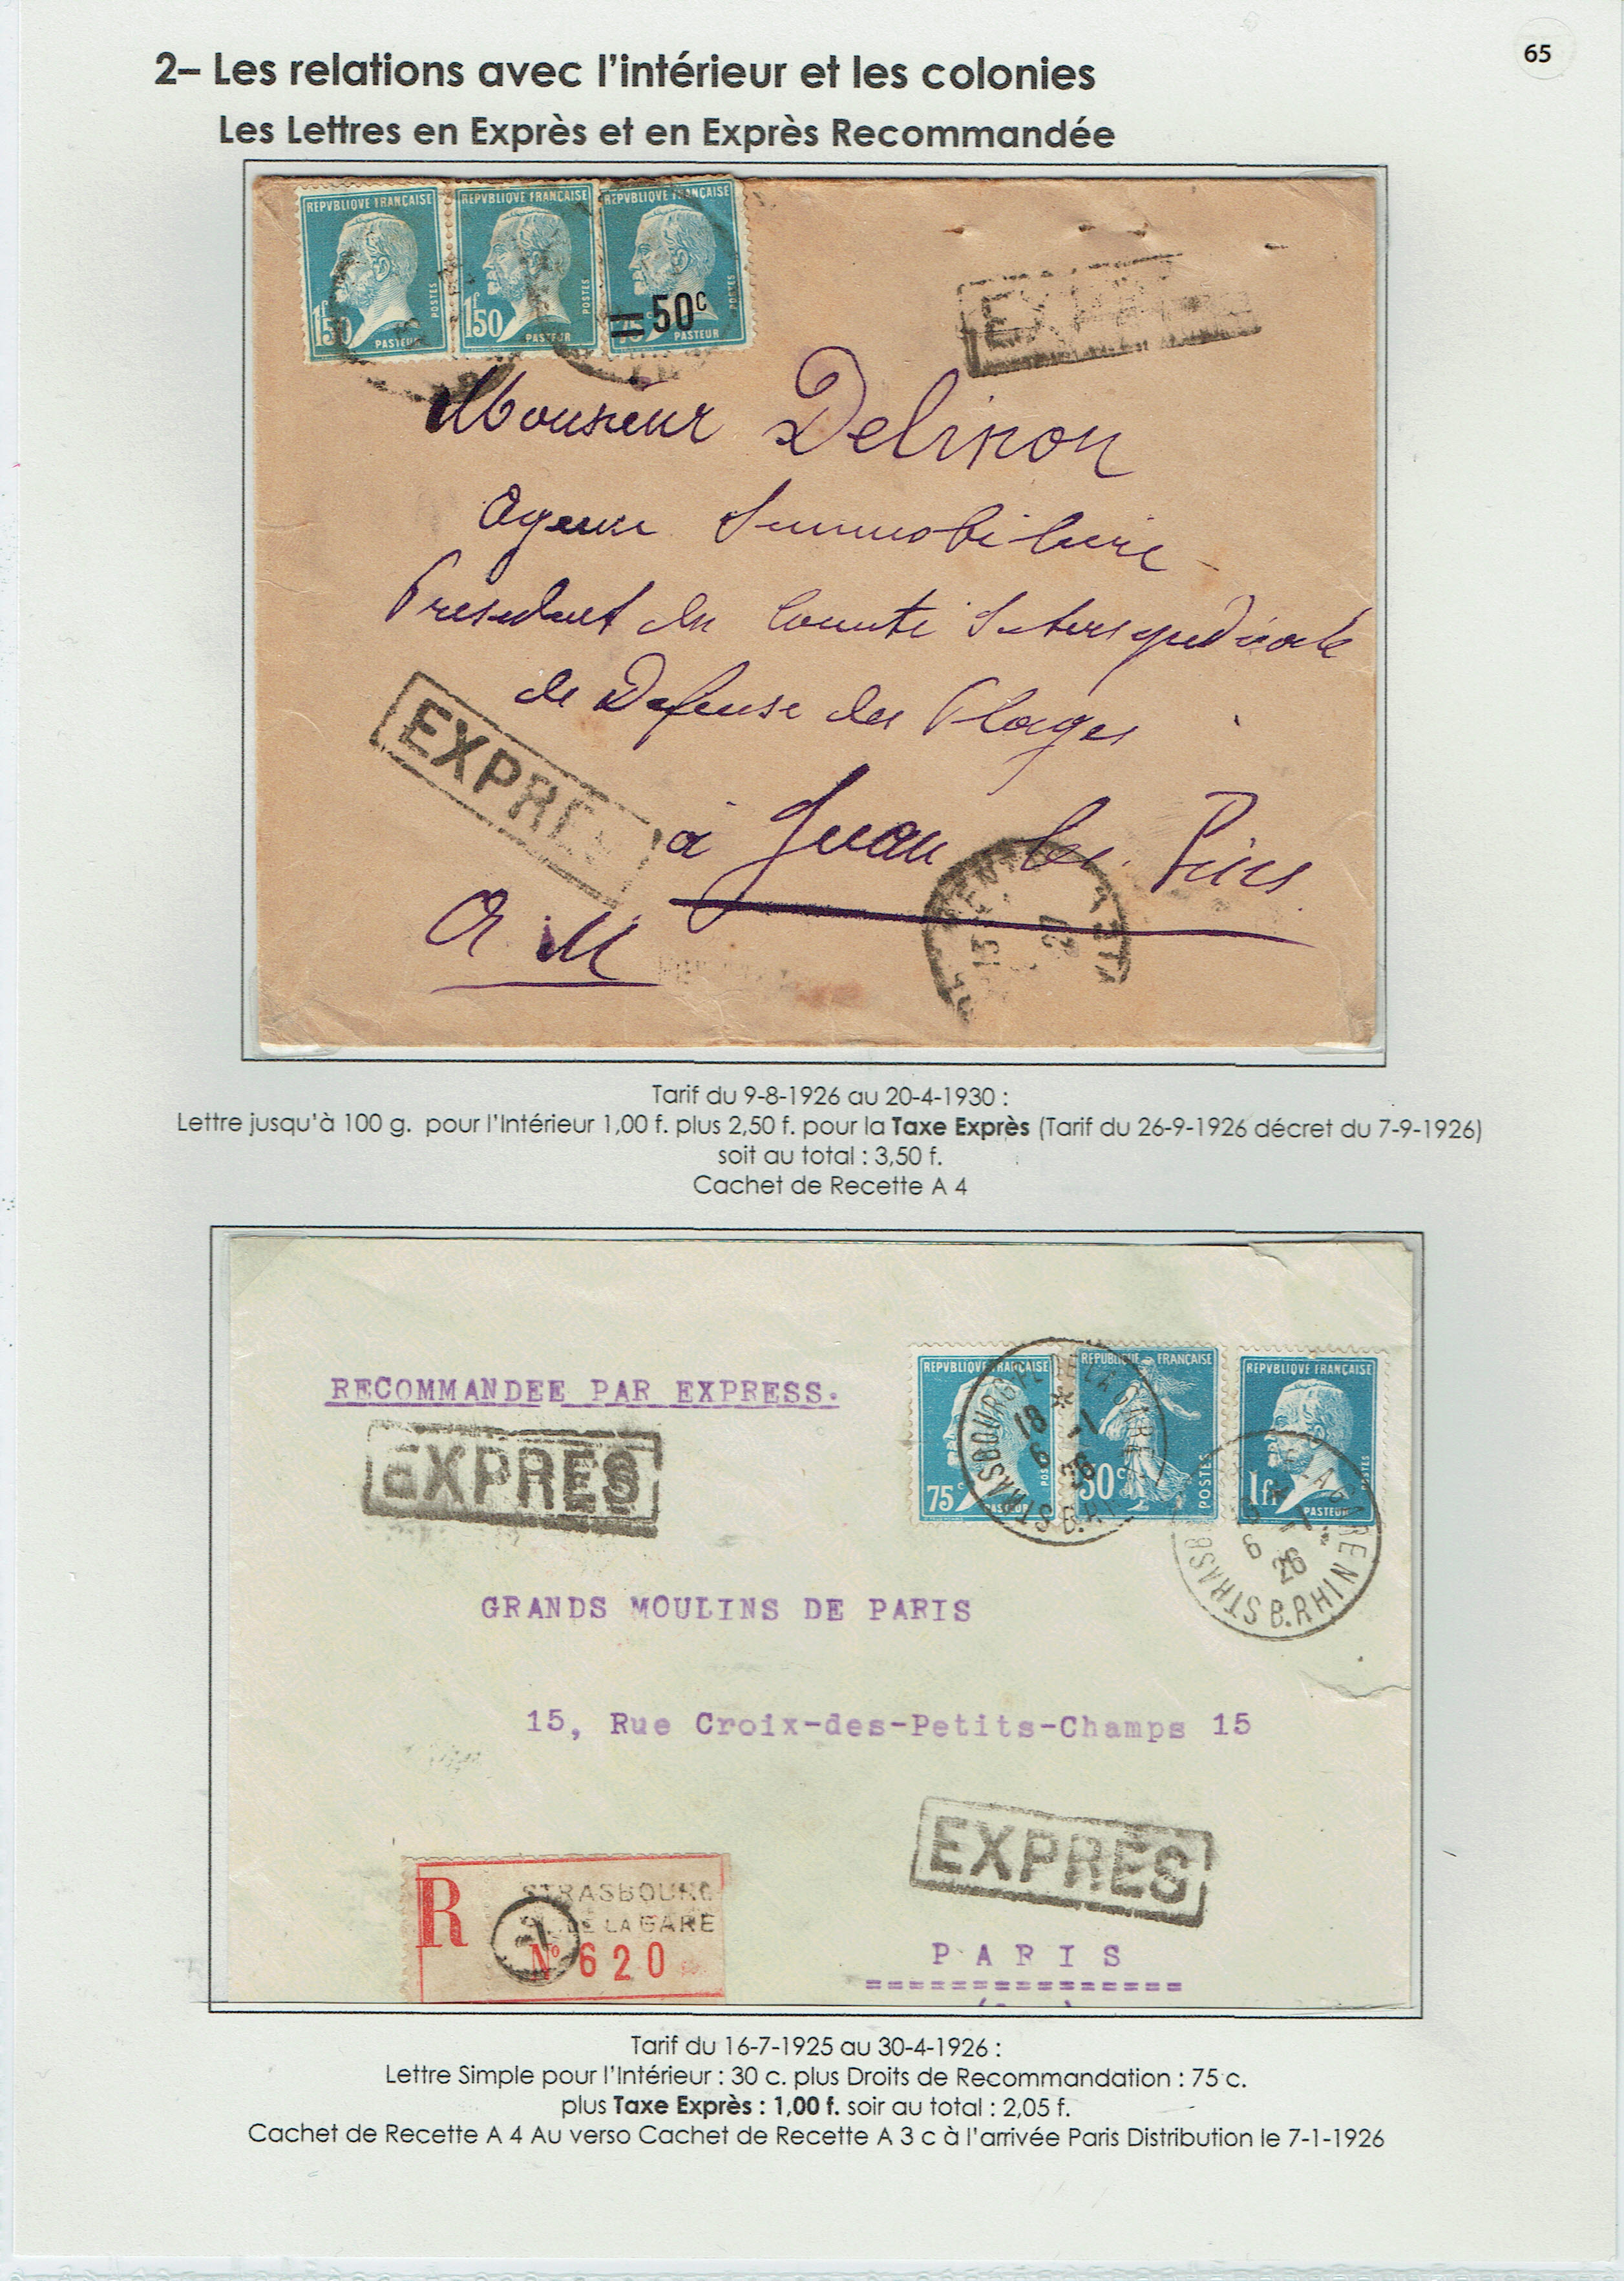 65
2– Les relations avec l'intérieur et les colonies
Les Lettres en Exprès et en Exprès Recommandée
REPVBLIQVE FRANÇAISE REPVBLIQVE FRANÇAISE REPVBLIQVE FRANÇAISE
POSTES POSTES POSTES
1f 50 1f 50 75c 50c
PASTEUR PASTEUR PASTEUR
Monsieur Delinon
Agence Immobilière
President du Comité Intersyndicale
de Defense des Plages
EXPRE
à Juan les Pins
A M
13 27
Tarif du 9-8-1926 au 20-4-1930 :
Lettre jusqu'à 100 g. pour l'Intérieur 1,00 f. plus 2,50 f. pour la Taxe Exprès (Tarif du 26-9-1926 décret du 7-9-1926)
soit au total : 3,50 f.
Cachet de Recette A 4
REPVBLIQVE FRANÇAISE REPUBLIQUE FRANÇAISE REPVBLIQVE FRANÇAISE
RECOMMANDEE PAR EXPRESS.
EXPRES
75c 50c 1fr
POSTES POSTES
PASTEUR PASTEUR
STRASBOURG PL. DE LA GARE B.RHIN
18 6 -1 26
STRASB LA GARE B.RHIN
6 -1 26
GRANDS MOULINS DE PARIS
15, Rue Croix-des-Petits-Champs 15
EXPRES
R STRASBOURG
DE LA GARE
N° 620
PARIS
================
Tarif du 16-7-1925 au 30-4-1926 :
Lettre Simple pour l'Intérieur : 30 c. plus Droits de Recommandation : 75 c.
plus Taxe Exprès : 1,00 f. soir au total : 2,05 f.
Cachet de Recette A 4 Au verso Cachet de Recette A 3 c à l'arrivée Paris Distribution le 7-1-1926